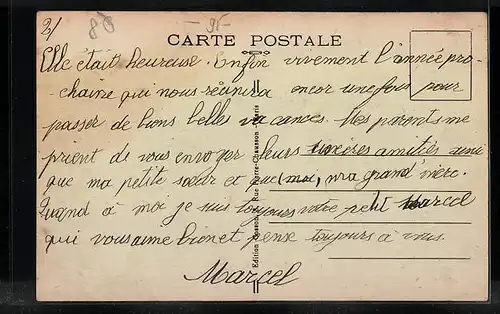 2/
80
-95-
CARTE POSTALE
Elle était heureuse. Enfin vivement l'année pro-
chaine qui nous réunira encor une fois pour
passer de bons belles vacances. Mes parents me
prient de vous envoyer leurs amitiés ainsi
que ma petite sœur et que moi, ma grand'mère.
Quand à moi je suis toujours votre petit Marcel
qui vous aime bien et pense toujours à vous.
Marcel
Edition Rue Pierre-Chausson Paris